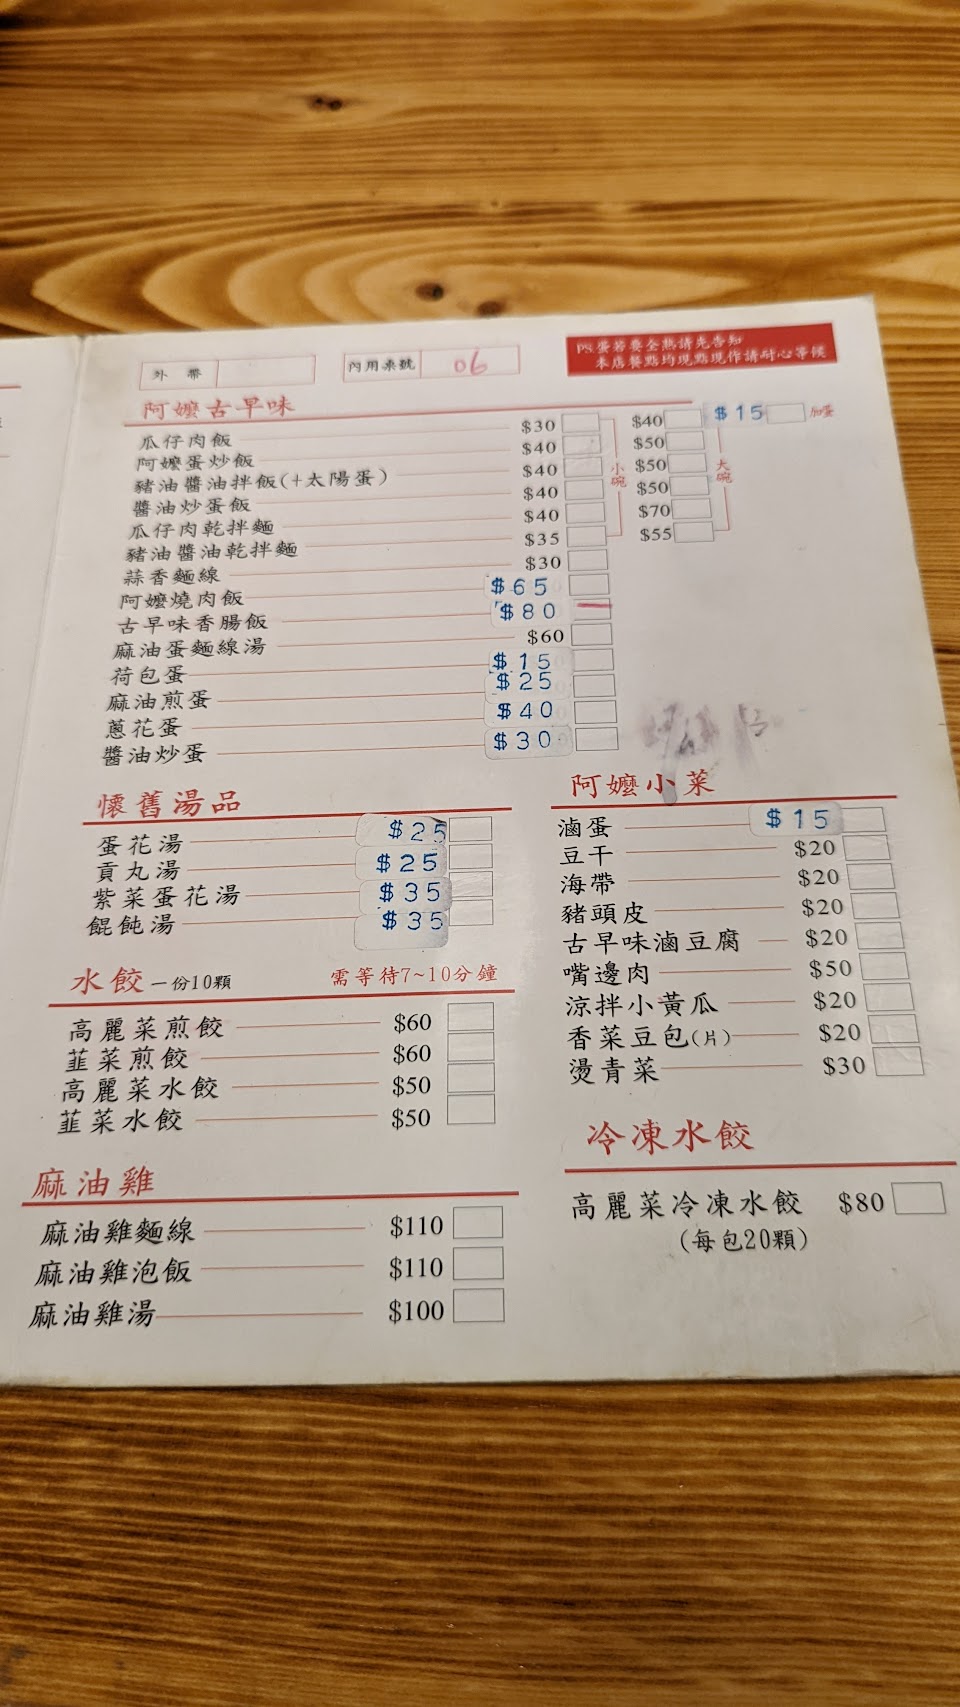 外 帶
內用桌號 06
PS.蛋若要全熟請先告知
本店餐點均現點現作請耐心等候
阿嬤古早味
瓜仔肉飯 $30 $40 $15 加蛋
阿嬤蛋炒飯 $40 $50
豬油醬油拌飯(+太陽蛋) $40 $50
醬油炒蛋飯 $40 $50
瓜仔肉乾拌麵 $40 $70
豬油醬油乾拌麵 $35 $55
小碗
大碗
蒜香麵線 $30
阿嬤燒肉飯 $65
古早味香腸飯 $80
麻油蛋麵線湯 $60
荷包蛋 $15
麻油煎蛋 $25
蔥花蛋 $40
醬油炒蛋 $30
懷舊湯品
蛋花湯 $25
貢丸湯 $25
紫菜蛋花湯 $35
餛飩湯 $35
水餃 一份10顆 需等待7~10分鐘
高麗菜煎餃 $60
韮菜煎餃 $60
高麗菜水餃 $50
韮菜水餃 $50
麻油雞
麻油雞麵線 $110
麻油雞泡飯 $110
麻油雞湯 $100
阿嬤小菜
滷蛋 $15
豆干 $20
海帶 $20
豬頭皮 $20
古早味滷豆腐 $20
嘴邊肉 $50
涼拌小黃瓜 $20
香菜豆包(片) $20
燙青菜 $30
冷凍水餃
高麗菜冷凍水餃 $80
(每包20顆)